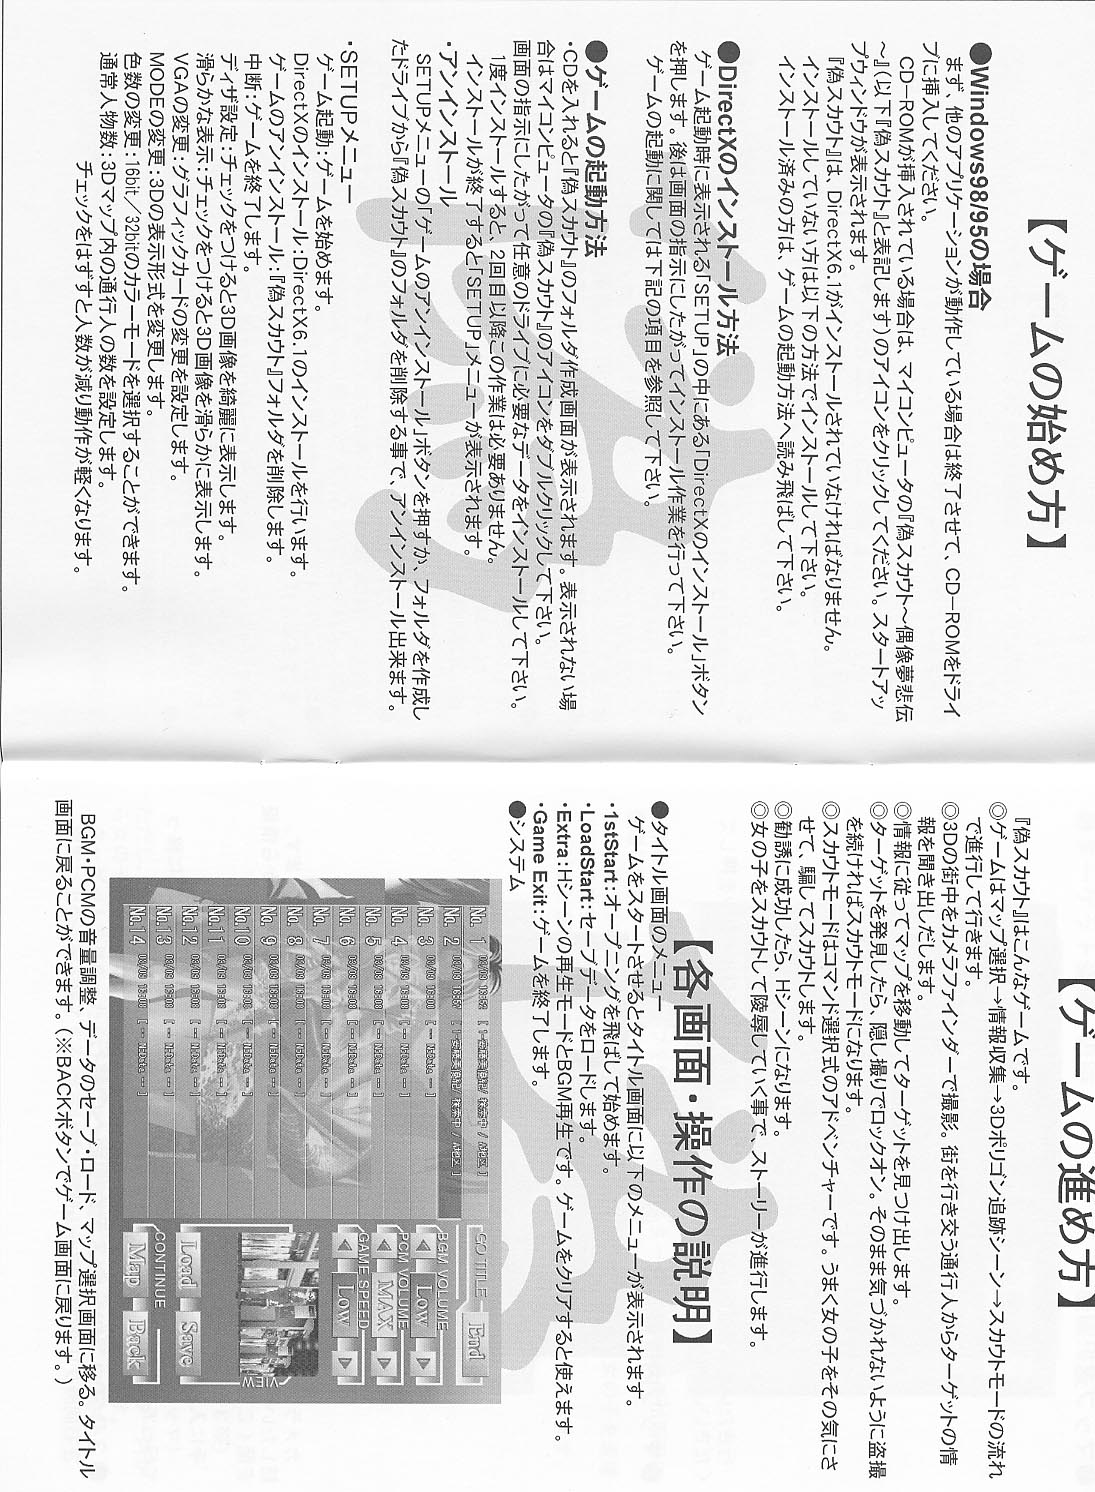 【ゲームの始め方】
●Windows98/95の場合
まず、他のアプリケーションが動作している場合は終了させて、CD－ROMをドライ
ブに挿入してください。
CD－ROMが挿入されている場合は、マイコンピュータの『偽スカウト～偶像夢悲伝
～』(以下『偽スカウト』と表記します)のアイコンをクリックしてください。スタートアッ
プウィンドウが表示されます。
『偽スカウト』は、DirectX6.1がインストールされていなければなりません。
インストールしていない方は以下の方法でインストールして下さい。
インストール済みの方は、ゲームの起動方法へ読み飛ばして下さい。
●DirectXのインストール方法
ゲーム起動時に表示される「SETUP」の中にある「DirectXのインストール」ボタン
を押します。後は画面の指示にしたがってインストール作業を行って下さい。
ゲームの起動に関しては下記の項目を参照して下さい。
●ゲームの起動方法
・CDを入れると『偽スカウト』のフォルダ作成画面が表示されます。表示されない場
合はマイコンピュータの『偽スカウト』のアイコンをダブルクリックして下さい。
画面の指示にしたがって任意のドライブに必要なデータをインストールして下さい。
1度インストールすると、2回目以降この作業は必要ありません。
インストールが終了すると「SETUP」メニューが表示されます。
・アンインストール
SETUPメニューの「ゲームのアンインストール」ボタンを押すか、フォルダを作成し
たドライブから『偽スカウト』のフォルダを削除する事で、アンインストール出来ます。
・SETUPメニュー
ゲーム起動：ゲームを始めます。
DirectXのインストール：DirectX6.1のインストールを行います。
ゲームのアンインストール：『偽スカウト』フォルダを削除します。
中断：ゲームを終了します。
ディザ設定：チェックをつけると3D画像を綺麗に表示します。
滑らかな表示：チェックをつけると3D画像を滑らかに表示します。
VGAの変更：グラフィックカードの変更を設定します。
MODEの変更：3Dの表示形式を変更します。
色数の変更：16bit／32bitのカラーモードを選択することができます。
通常人物数：3Dマップ内の通行人の数を設定します。
チェックをはずすと人数が減り動作が軽くなります。
【ゲームの進め方】
『偽スカウト』はこんなゲームです。
◎ゲームはマップ選択→情報収集→3Dポリゴン追跡シーン→スカウトモードの流れ
で進行して行きます。
◎3Dの街中をカメラファインダーで撮影。街を行き交う通行人からターゲットの情
報を聞き出しだします。
◎情報に従ってマップを移動してターゲットを見つけ出します。
◎ターゲットを発見したら、隠し撮りでロックオン。そのまま気づかれないように盗撮
を続ければスカウトモードになります。
◎スカウトモードはコマンド選択式のアドベンチャーです。うまく女の子をその気にさ
せて、騙してスカウトします。
◎勧誘に成功したら、Hシーンになります。
◎女の子をスカウトして陵辱していく事で、ストーリーが進行します。
【各画面・操作の説明】
●タイトル画面のメニュー
ゲームをスタートさせるとタイトル画面に以下のメニューが表示されます。
・1stStart：オープニングを飛ばして始めます。
・LoadStart：セーブデータをロードします。
・Extra：Hシーンの再生モードとBGM再生です。ゲームをクリアすると使えます。
・Game Exit：ゲームを終了します。
●システム
No. 1
No. 2
No. 3
No. 4
No. 5
No. 6
No. 7
No. 8
No. 9
No.10
No.11
No.12
No.13
No.14
GO TITLE
End
BGM VOLUME
Low
PCM VOLUME
MAX
GAME SPEED
Low
VIEW
Load
Save
CONTINUE
Map
Back
BGM・PCMの音量調整、データのセーブ・ロード、マップ選択画面に移る。タイトル
画面に戻ることができます。(※BACKボタンでゲーム画面に戻ります。)